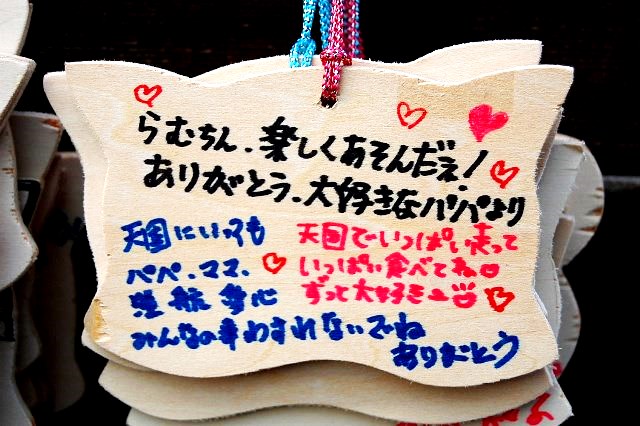 らむちん、楽しくあそんだえ!
ありがとう、大好きなパパより
天国にいっても
パペ、ママ、
航 心
みんなの事わすれないでね
ありがとう
天国でいっぱい走って
いっぱい食べてね
ずっと大好き